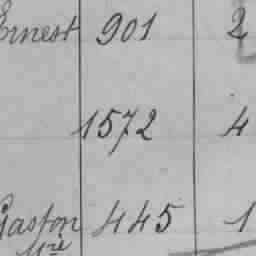 Ernest 901 2
1572 4
Gaston 445 1